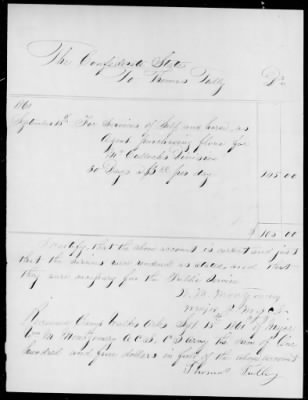 The Confederate States
To Thomas Tully Dr
1861
September 15th For Services of Self and horse, as
Agent purchasing flour for
McCulloch's Division
30 Days @ $3.50 per day 105.00
$ 105.00
I certify that the above account is correct and just
that the services were rendered as stated and that
they were necessary for the Public Service
W. M. Montgomery
Major &
Received Camp Ark. Sept. 15th 1861 of Major
Wm M. Montgomery A.C.S. C.S. Army the sum of One
hundred and five dollars in full of the above account
Thomas Tully